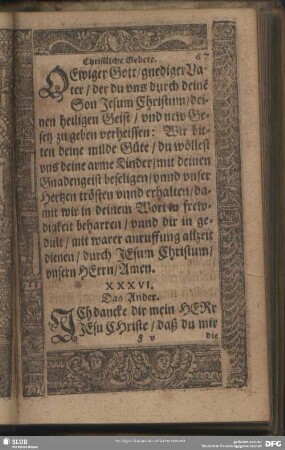 Christliche Gebete. 67
O Ewiger Gott / gnediger Va-
ter / der du vns durch deinē
Son Jesum Christum / dei-
nen heiligen Geist / vnd new Ge-
setz zugeben verheissen: Wir bit-
ten deine milde Güte / du wöllest
vns deine arme Kinder / mit deinen
Gnadengeist beseligen / vnnd vnser
Hertzen trösten vnnd erhalten / da-
mit wir in deinem Wort in frew-
digkeit beharren / vnnd dir in ge-
dult / mit warer anruffung allzeit
dienen / durch JEsum Christum /
vnsern HErrn / Amen.
XXXVI.
Das Ander.
ICh dancke dir mein HERr
JEsu CHriste / daß du mir
F v die
SLUB
DFG